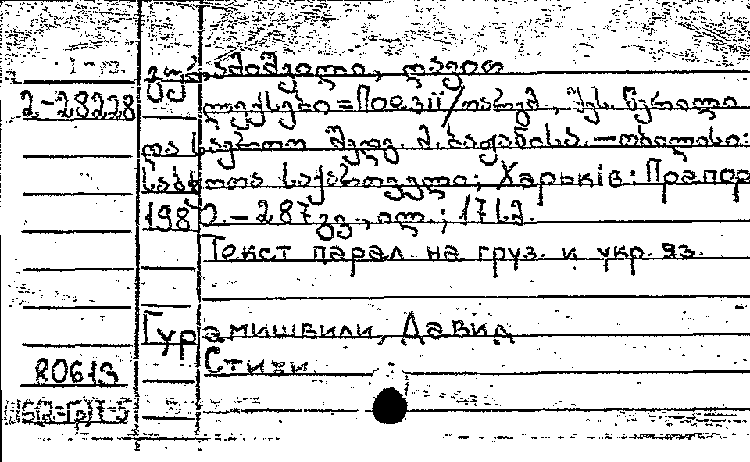 გურამიშვილი, დავით
2-28228
ლექსები = Поезії / თარგმ., შეს. წერილი
და საერთო შედგ. მ. ბაჟანისა. — თბილისი:
საბჭოთა საქართველო; Харьків: Прапор
1980. — 287 გვ., ილ.; 17 სმ.
Текст парал. на груз. и укр. яз.
Гурамишвили, Давид
Стихи
80613